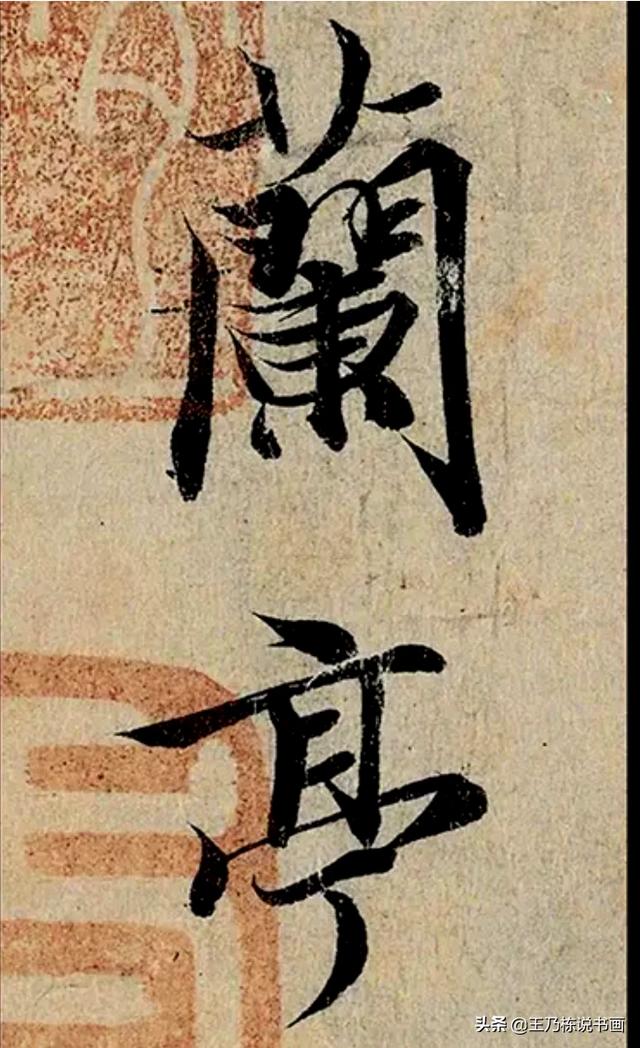 蘭亭
头条 @王乃栋说书画